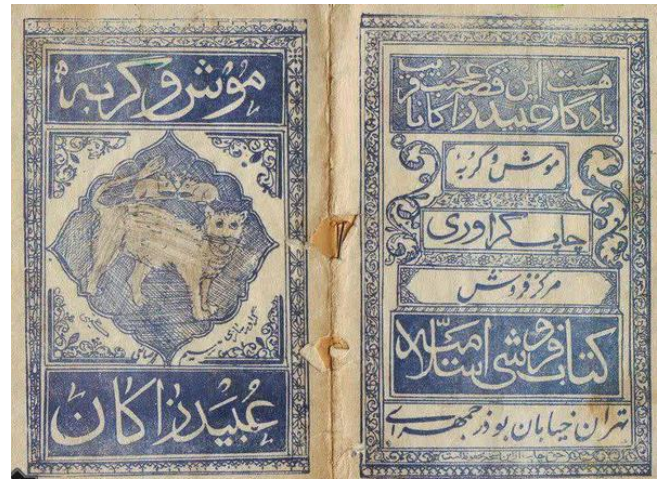 هست این قصهٔ عجیب و غریب
یادگار عبید زاکانا
موش و گربه
چاپ گراوری
مرکز فروش
کتابفروشی اسلامیه
تهران خیابان بوذرجمهری
موش و گربه
عبید زاکان